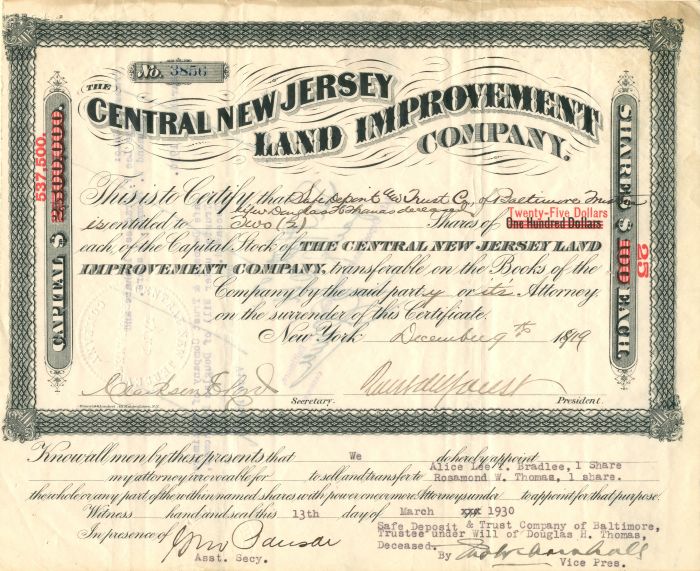 No. 3856
THE
CENTRAL NEW JERSEY
LAND IMPROVEMENT
COMPANY.
CAPITAL $ 2,500,000.
537,500.
SHARES $ 100 EACH.
25
This is to Certify that Safe Deposit & Trust Co. of Baltimore Trustee
u/w Douglas H Thomas deceased
is entitled to Two (2) Shares of One Hundred Dollars
Twenty-Five Dollars
each of the Capital Stock of THE CENTRAL NEW JERSEY LAND
IMPROVEMENT COMPANY, transferable on the Books of the
Company by the said party or its Attorney
on the surrender of this Certificate.
New York December 9th 1919
Secretary. President.
Know all men by these presents that We do hereby appoint
my attorney irrevocable for to sell and transfer to Alice Lee T. Bradlee, 1 Share
Rosamond W. Thomas, 1 share.
the whole or any part of the within named shares with power one or more Attorneys under to appoint for that purpose.
Witness hand and seal this 13th day of March 1930
Safe Deposit & Trust Company of Baltimore,
Trustee under Will of Douglas H. Thomas,
Deceased.
In presence of
Asst. Secy.
By
Vice Pres.